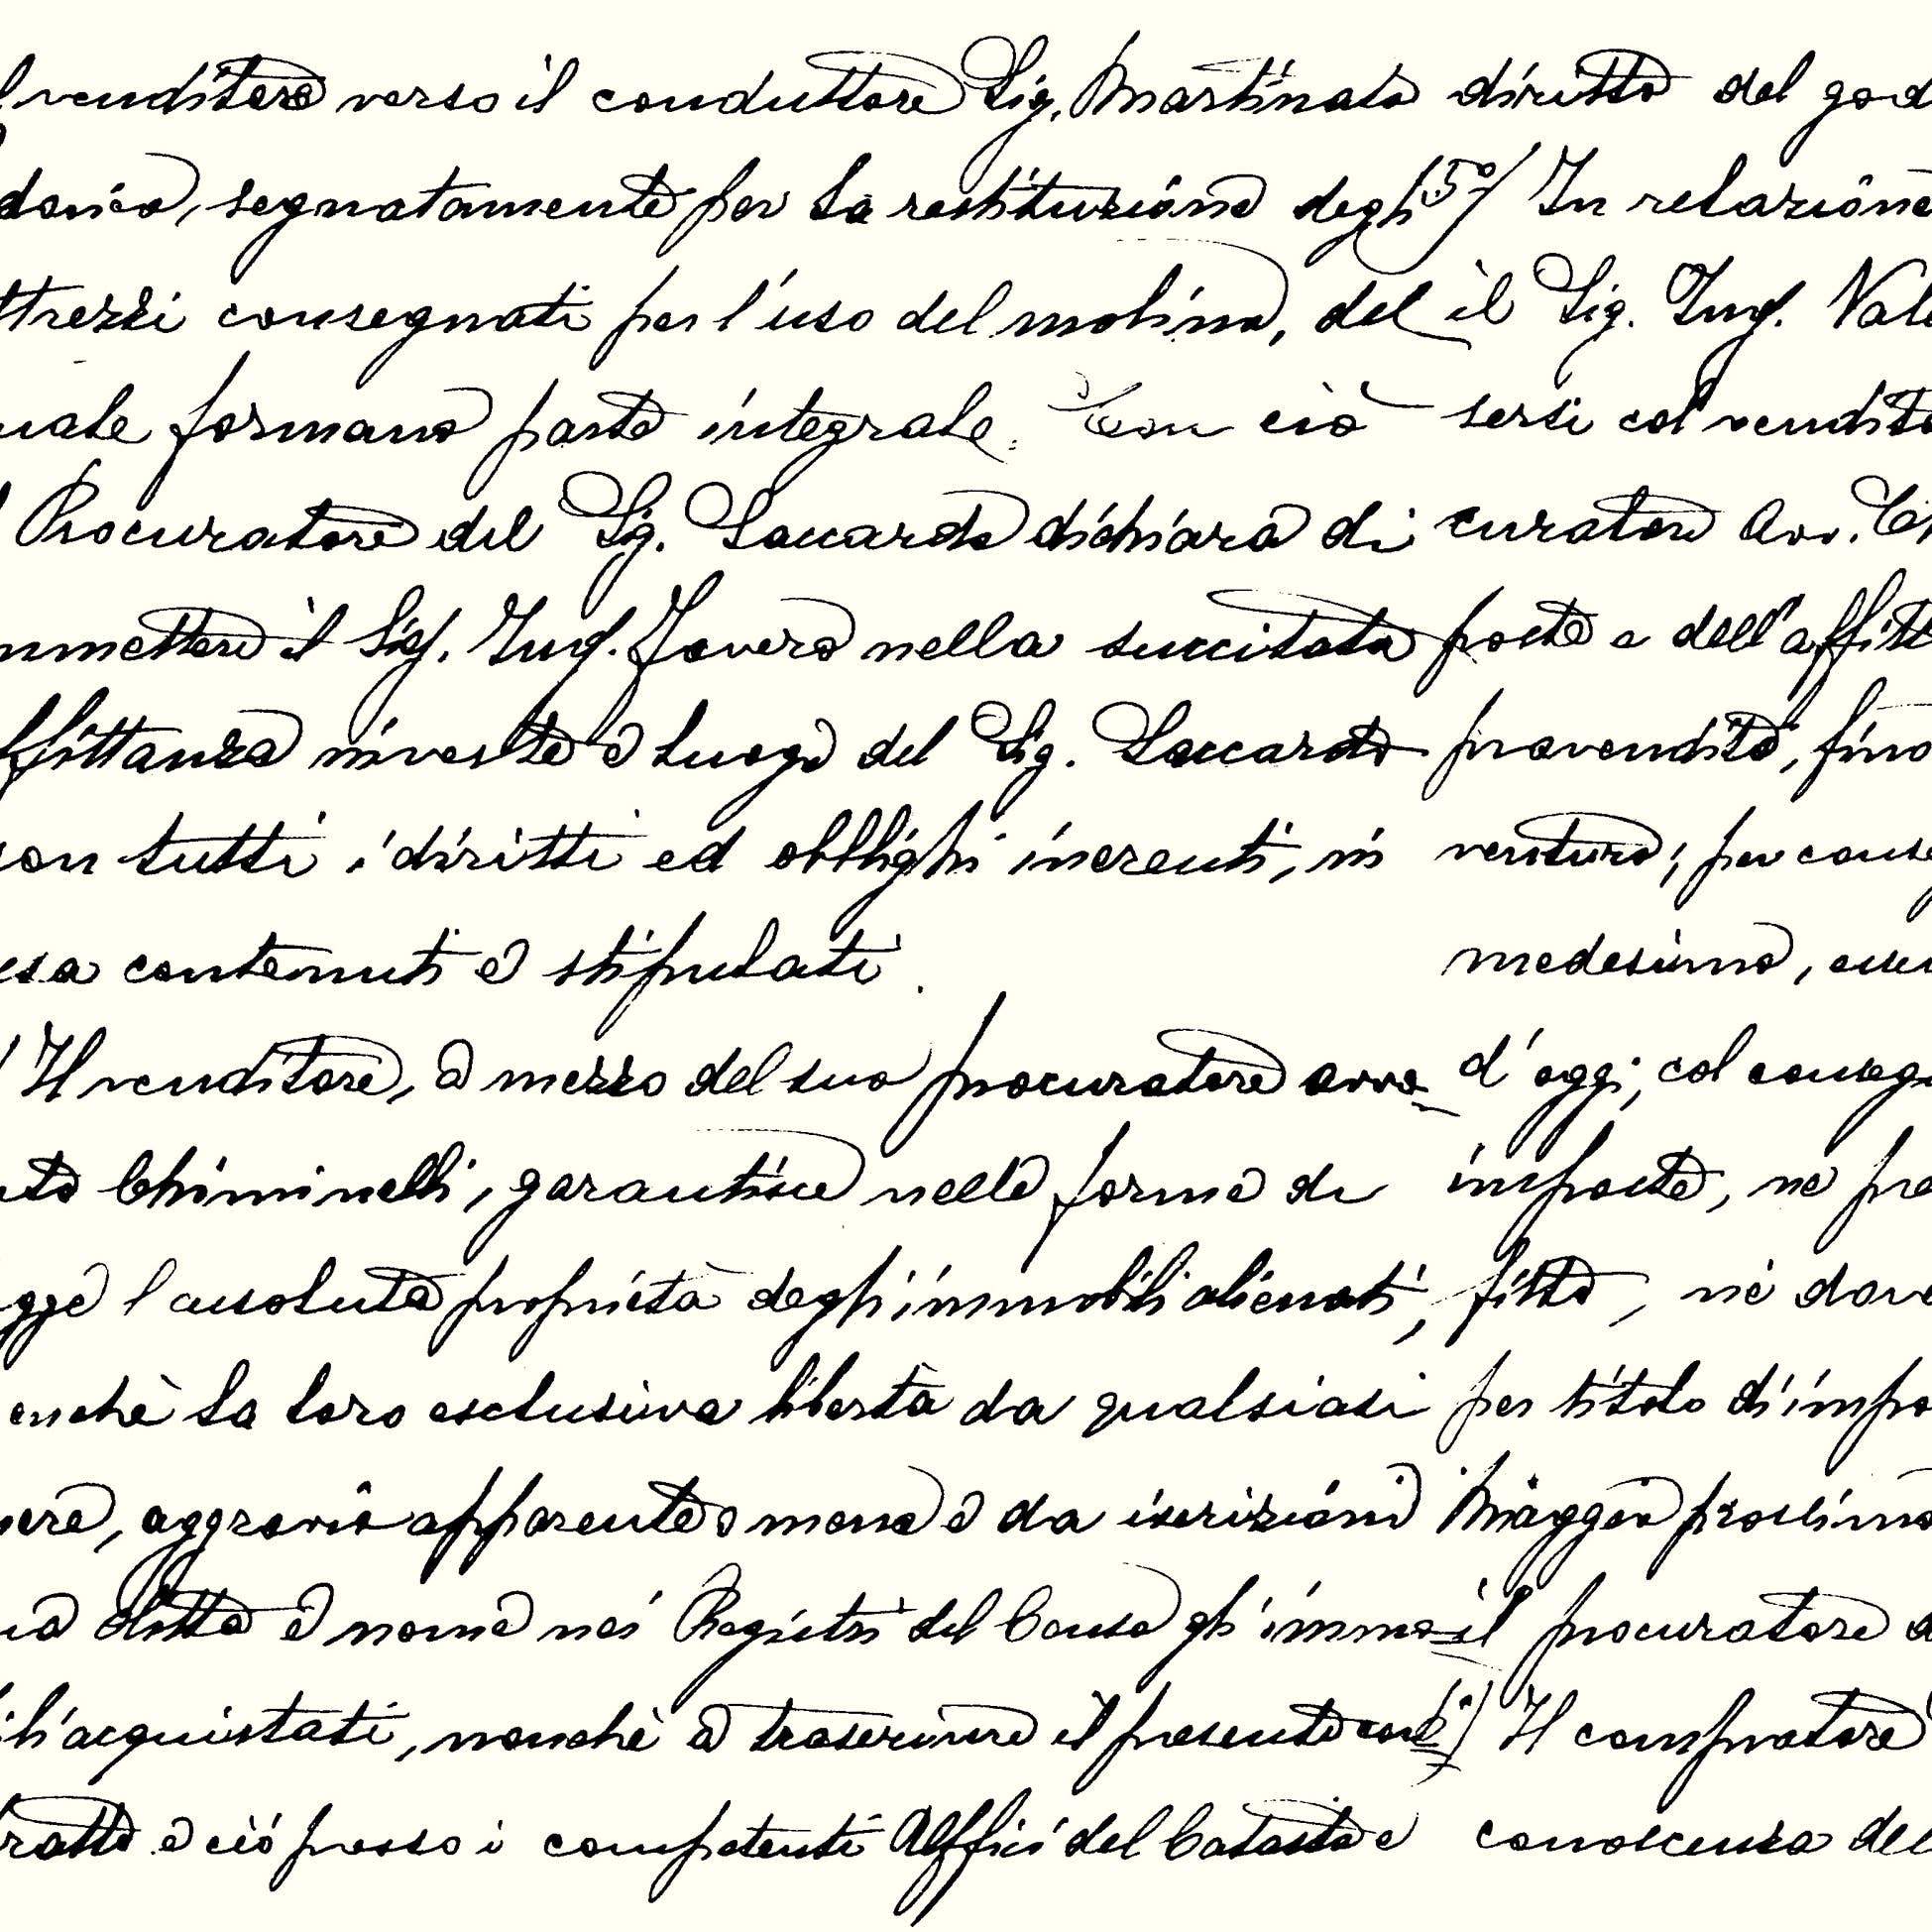 venditore verso il conduttore Sig. Martinato diritto del god
segnatamente per la restituzione degli 5°/ In relazione
ttrezzi consegnati per l'uso del molino, del il Sig. Ing. Vale
uale formano parte integrale. Con ciò sersi col vendito
Procuratore del Sig. Saccardo dichiara di curatore Avv. Ch
mmettere il Sig. Ing. Favero nella succitata poste e dell'affitt
ffittanza in veste e luogo del Sig. Saccardo provendito, fino
con tutti i diritti ed obblighi inerenti, in venturo; per conse
essa contenuti e stipulati. medesimo, esse
Il venditore, a mezzo del suo procuratore avvo d'oggi; col conseg
ato Chiminelli, garantisce nelle forme di imposte, ne pre
gge l'assoluta proprietà degli immobili alienati, fitto, nè dov
onchè la loro esclusiva libertà da qualsiasi per titolo di impo
nere, aggravio apparente o meno e da iscrizioni Maggio prossimo
ua ditta e nome nei Registri del Censo gli immo il procuratore d
ili acquistati, nonchè a trascrivere il presente con Il compratore
tratto e ciò presso i competenti Uffici del Catasto e conoscenza del